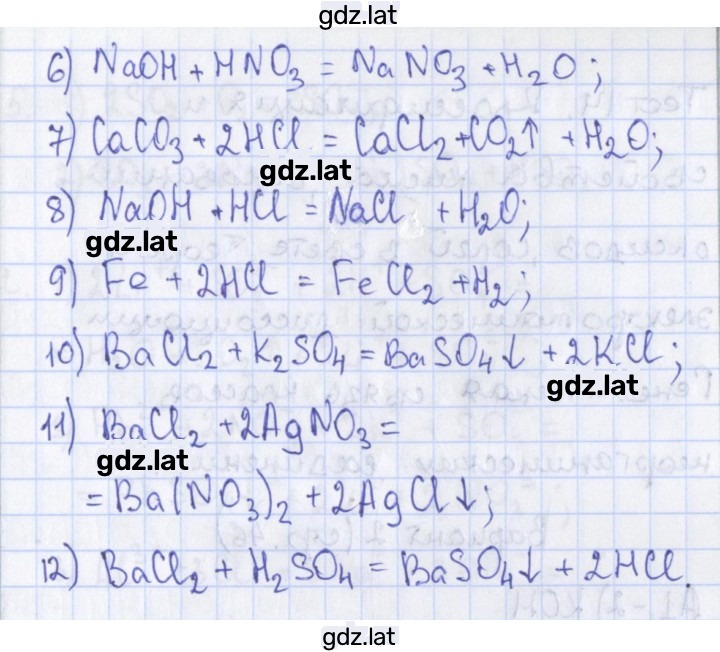 gdz.lat
6) NaOH + HNO₃ = NaNO₃ + H₂O;
7) CaCO₃ + 2HCl = CaCl₂ + CO₂↑ + H₂O;
gdz.lat
8) NaOH + HCl = NaCl + H₂O;
gdz.lat
9) Fe + 2HCl = FeCl₂ + H₂;
10) BaCl₂ + K₂SO₄ = BaSO₄↓ + 2KCl;
gdz.lat
11) BaCl₂ + 2AgNO₃ =
gdz.lat
= Ba(NO₃)₂ + 2AgCl↓;
12) BaCl₂ + H₂SO₄ = BaSO₄↓ + 2HCl.
gdz.lat